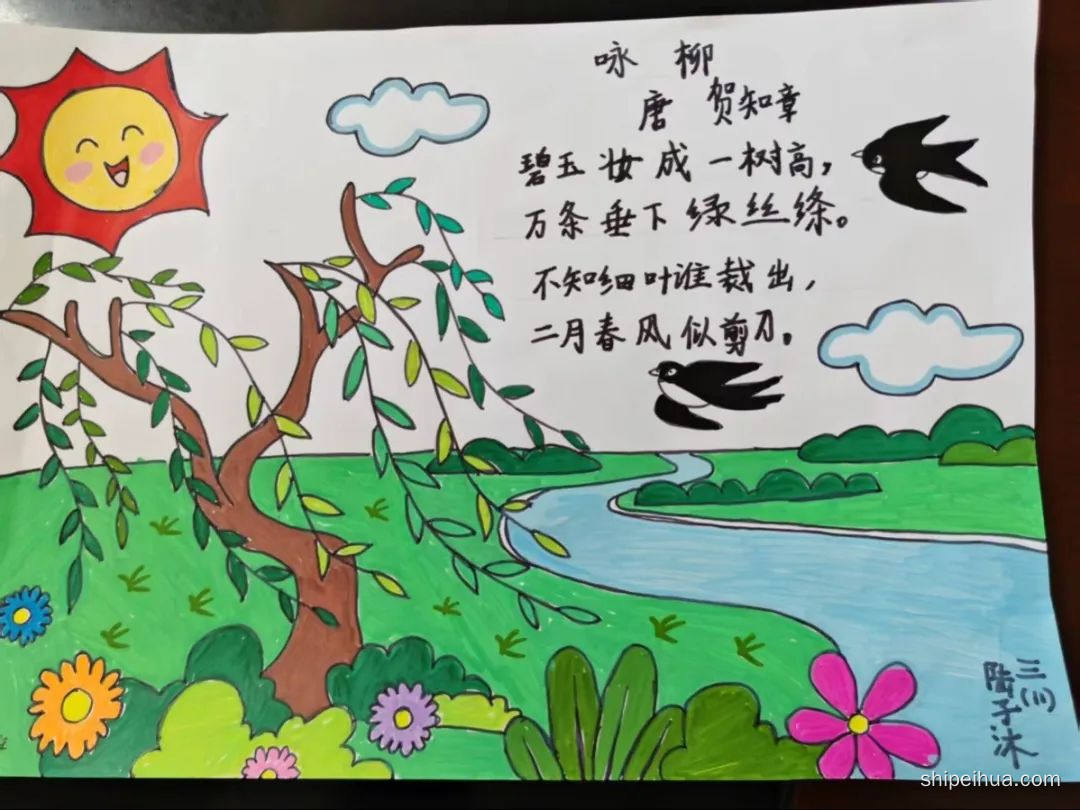 咏柳
唐 贺知章
碧玉妆成一树高，
万条垂下绿丝绦。
不知细叶谁裁出，
二月春风似剪刀。
三(11)
陆子沐
shipeihua.com